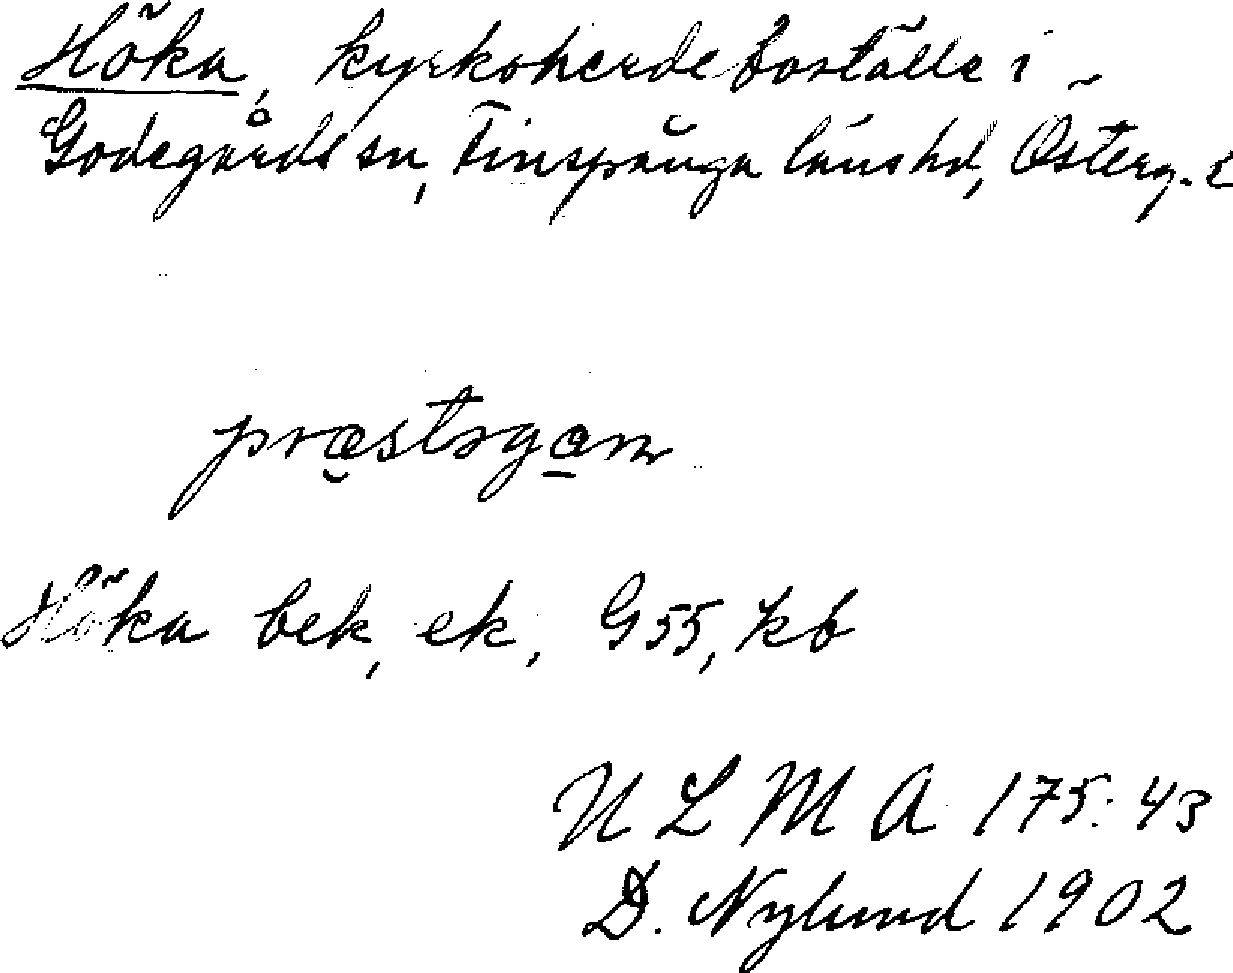 Höka, kyrkoherdeboställe i
Godegårds sn, Finspånga länshd, Österg. l
præstsgam
Höka bek, ek, G 55, kb
U L M A 175:43
D. Nylund 1902